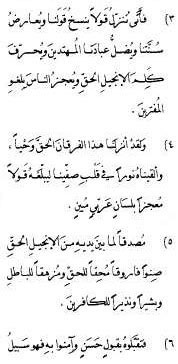 ٣) فأنّى نُنزل قولاً ينسخ قولنا ويُعارض
سُنّتنا ويُضلُّ عبادنا المهتدين ويُحرّف
كلم الإنجيل الحق ويُعجزُ الناس بلغو
المفترين.
٤) ولقد أنزلنا هذا الفرقان الحقَّ وحياً،
وألقيناه نوراً في قلب صفيّنا ليبلّغه قولاً
مُعجزاً بلسانٍ عربيٍّ مبين.
٥) مُصدّقاً لما بين يديه من الإنجيل الحق
صِنواً فاروقاً مُحقّاً للحق ومُزهقاً للباطل
وبشيراً ونذيراً للكافرين.
٦) فتقبّلوه بقبولٍ حسنٍ وآمنوا به فهو سبيل